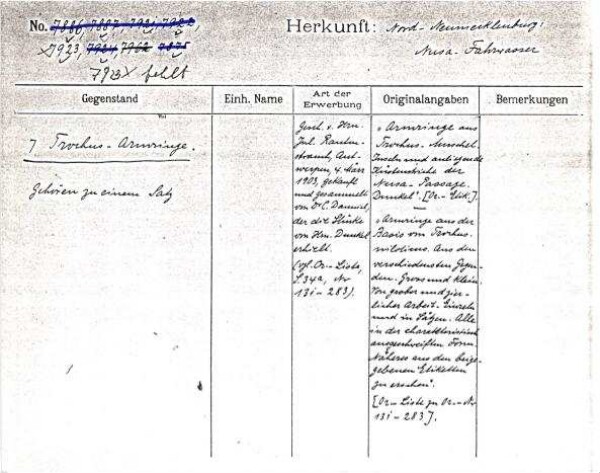 No. 7886, 7887, 7921, 7922,
7923, 7924, 7962, 7875
7923 fehlt
Herkunft: Nord-Neumecklenburg:
Nusa-Fahrwasser
Gegenstand
Einh. Name
Art der
Erwerbung
Originalangaben
Bemerkungen
7 Trochus-Armringe.
Gehören zu einem Satz
Gesch. v. Hrn.
Jul. Rauten-
strauch, Ant-
werpen, 4. März
1903, gekauft
und gesammelt
von Dr. C. Danneil,
der die Stücke
von Hrn. Dunkel
erhielt.
(vgl. Or-Liste,
S. 34a, Nr
131-283).
"Armringe aus
Trochus-Muschel.
Inseln und anliegende
Küstenstriche der
Nusa-Passage.
Dunkel". [Or.-Etik.]
"Armringe aus der
Basis von Trochus
niloticus. Aus den
verschiedensten Gegen-
den. Gross und klein.
Von grober und zier-
licher Arbeit. Einzeln
und in Sätzen. Alle
in der charakteristisch
ausgeschweiften Form.
Näheres aus den beige-
gebenen Etiketten
zu ersehen".
[Or-Liste zu Or-Nr
131-283].